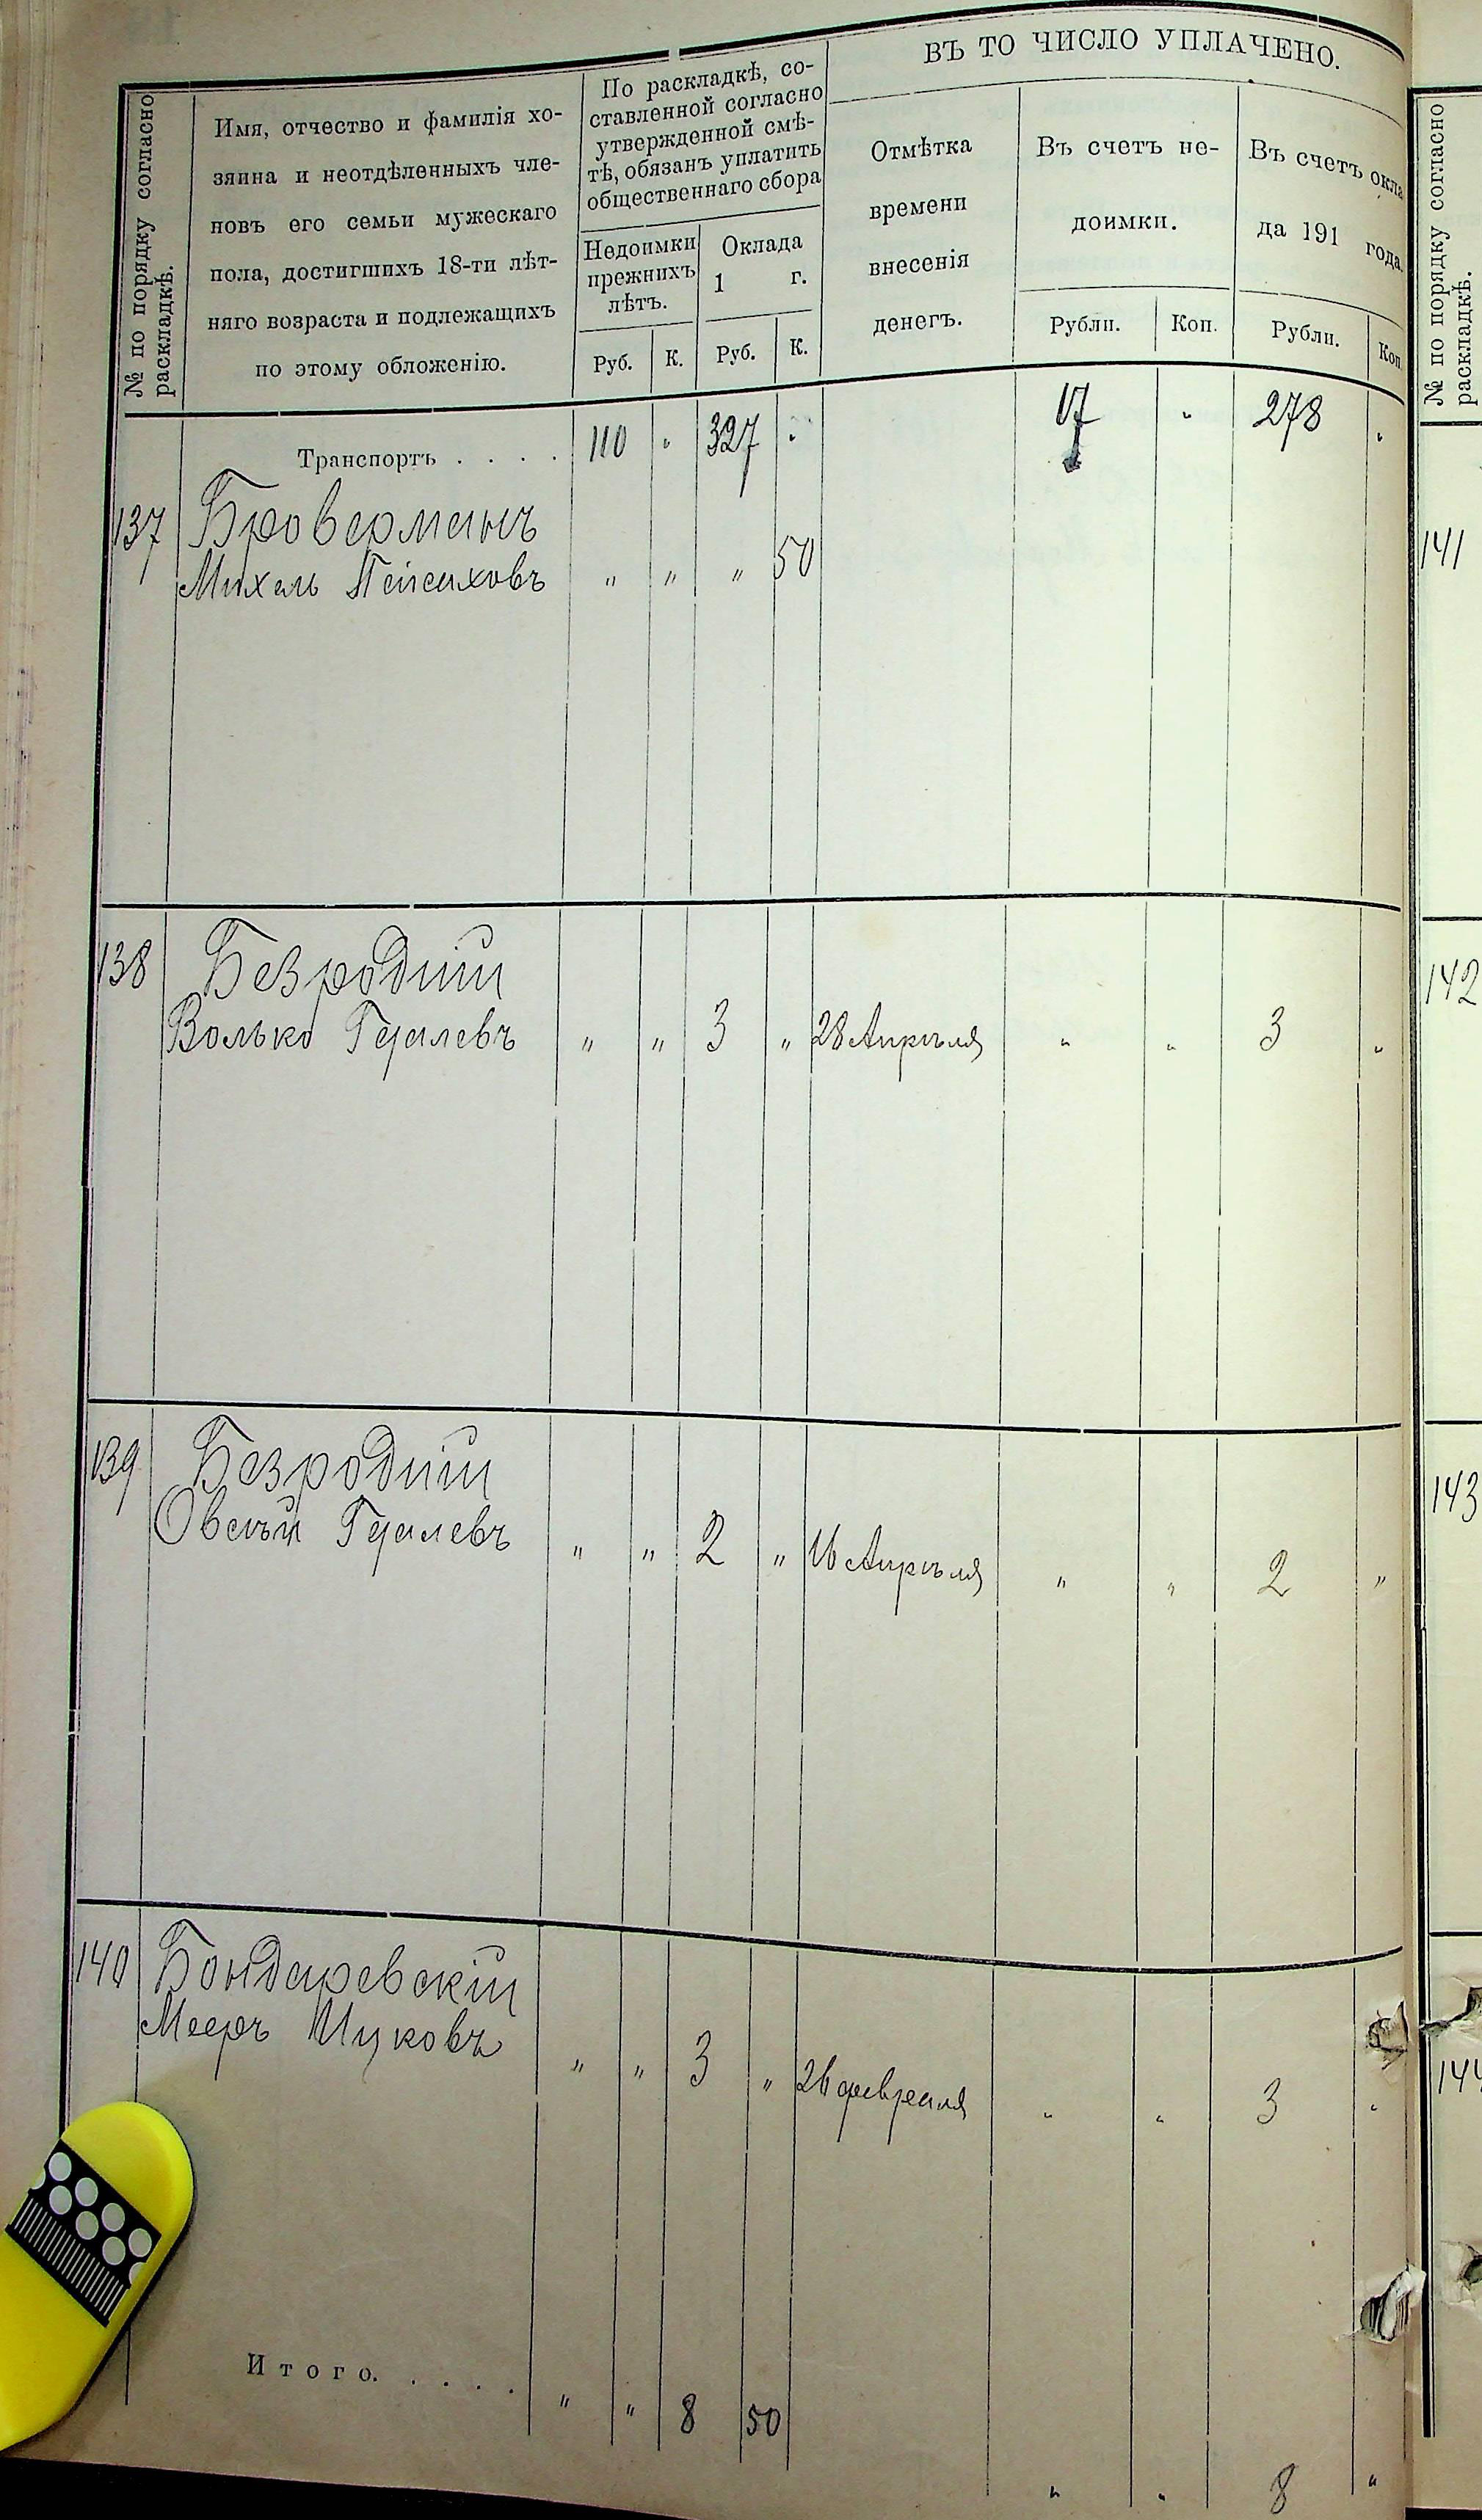 № по порядку согласно
раскладкѣ.
Имя, отчество и фамилія хо-
зяина и неотдѣленныхъ чле-
новъ его семьи мужескаго
пола, достигшихъ 18-ти лѣт-
няго возраста и подлежащихъ
по этому обложенію.
По раскладкѣ, со-
ставленной согласно
утвержденной смѣ-
тѣ, обязанъ уплатить
общественнаго сбора
Недоимки
прежнихъ
лѣтъ.
Оклада
1 г.
Руб. К. Руб. К.
ВЪ ТО ЧИСЛО УПЛАЧЕНО.
Отмѣтка
времени
внесенія
денегъ.
Въ счетъ не-
доимки.
Рубли. Коп.
Въ счетъ окла
да 191 года
Рубли. Коп.
Транспортъ . . . . 110 " 327 " 17 " 278 "
137 Броверманъ
Михель Пейсаховъ " " " 50
138 Безродній
Волько Гдалевъ " " 3 " 28 Апрѣля " " 3 "
139 Безродній
Овсѣй Гдалевъ " " 2 " 16 Апрѣля " " 2 "
140 Бондаревскій
Мееръ Ицковъ " " 3 " 26 февраля " " 3 "
Итого. . . . . " " 8 50 " " 8 "
№ по порядку согласно
раскладкѣ.
141
142
143
144